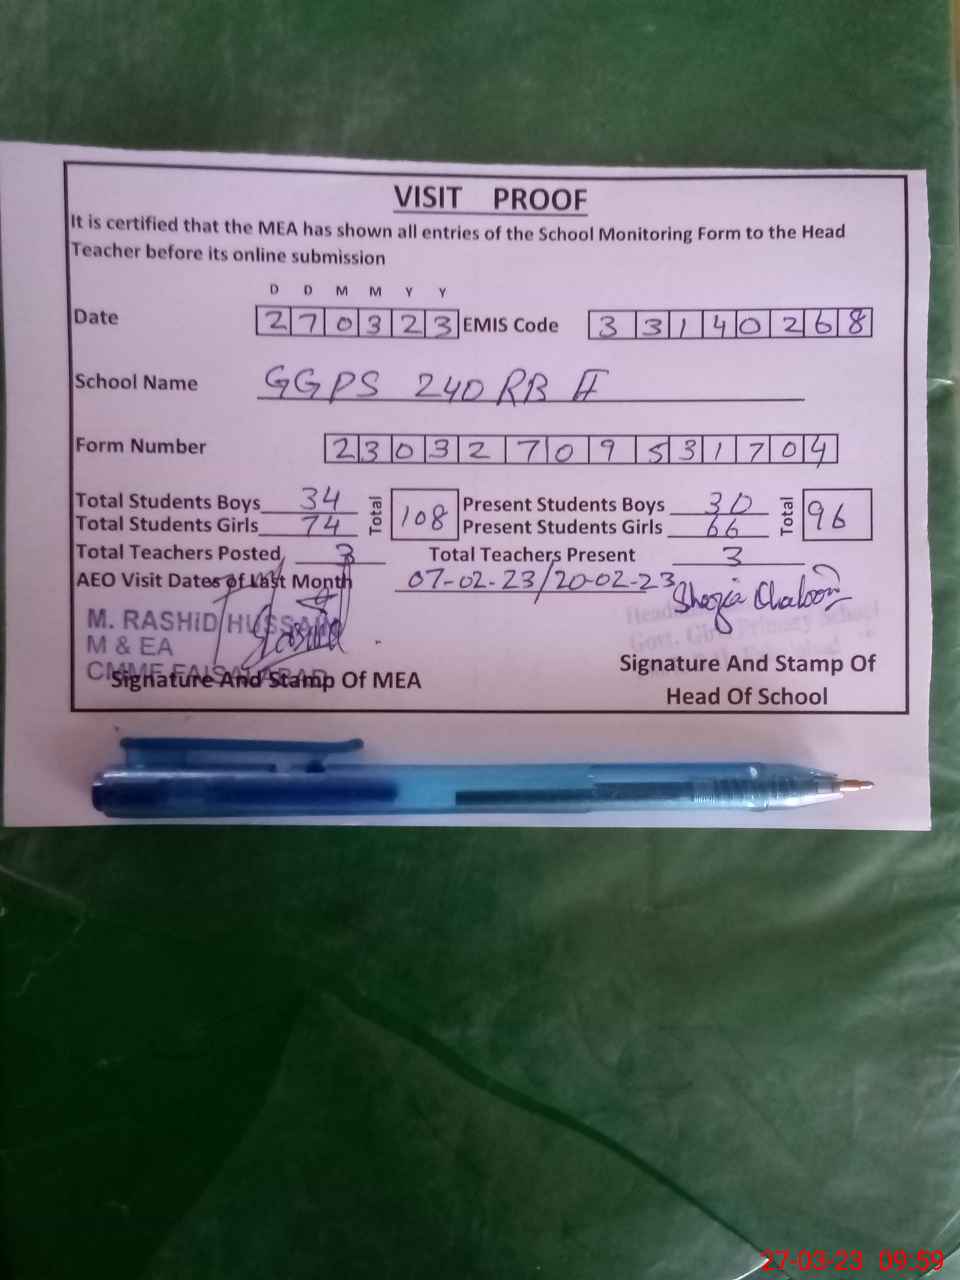 VISIT PROOF
It is certified that the MEA has shown all entries of the School Monitoring Form to the Head
Teacher before its online submission
D D M M Y Y
Date 270323 EMIS Code 33140268
School Name GGPS 240 RB II
Form Number 23032709531704
Total Students Boys 34 Total 108 Present Students Boys 30 Total 96
Total Students Girls 74 Present Students Girls 66
Total Teachers Posted 3 Total Teachers Present 3
AEO Visit Dates of Last Month 07-02-23/20-02-23
M. RASHID HUSSAIN
M & EA
CMMF FAISALABAD
Signature And Stamp Of MEA
Govt. Girls Primary School
Signature And Stamp Of
Head Of School
27-03-23 09:59